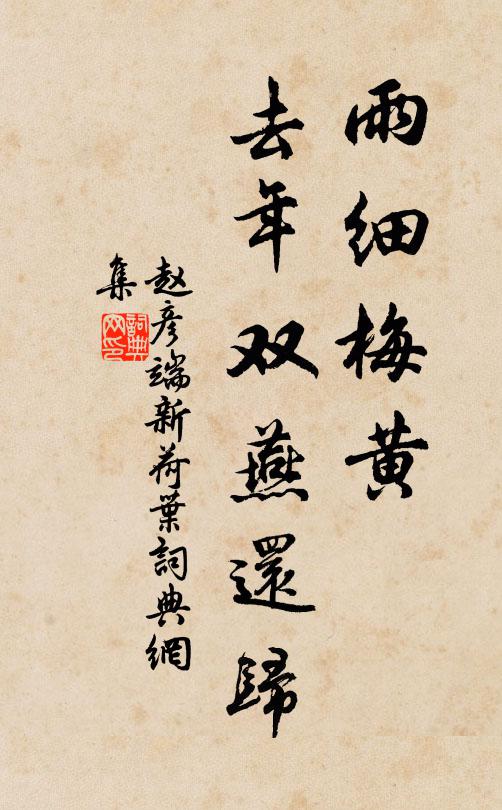 雨细梅黄
去年双燕還歸
赵彦端新荷葉詞典網
集
詞典
网印